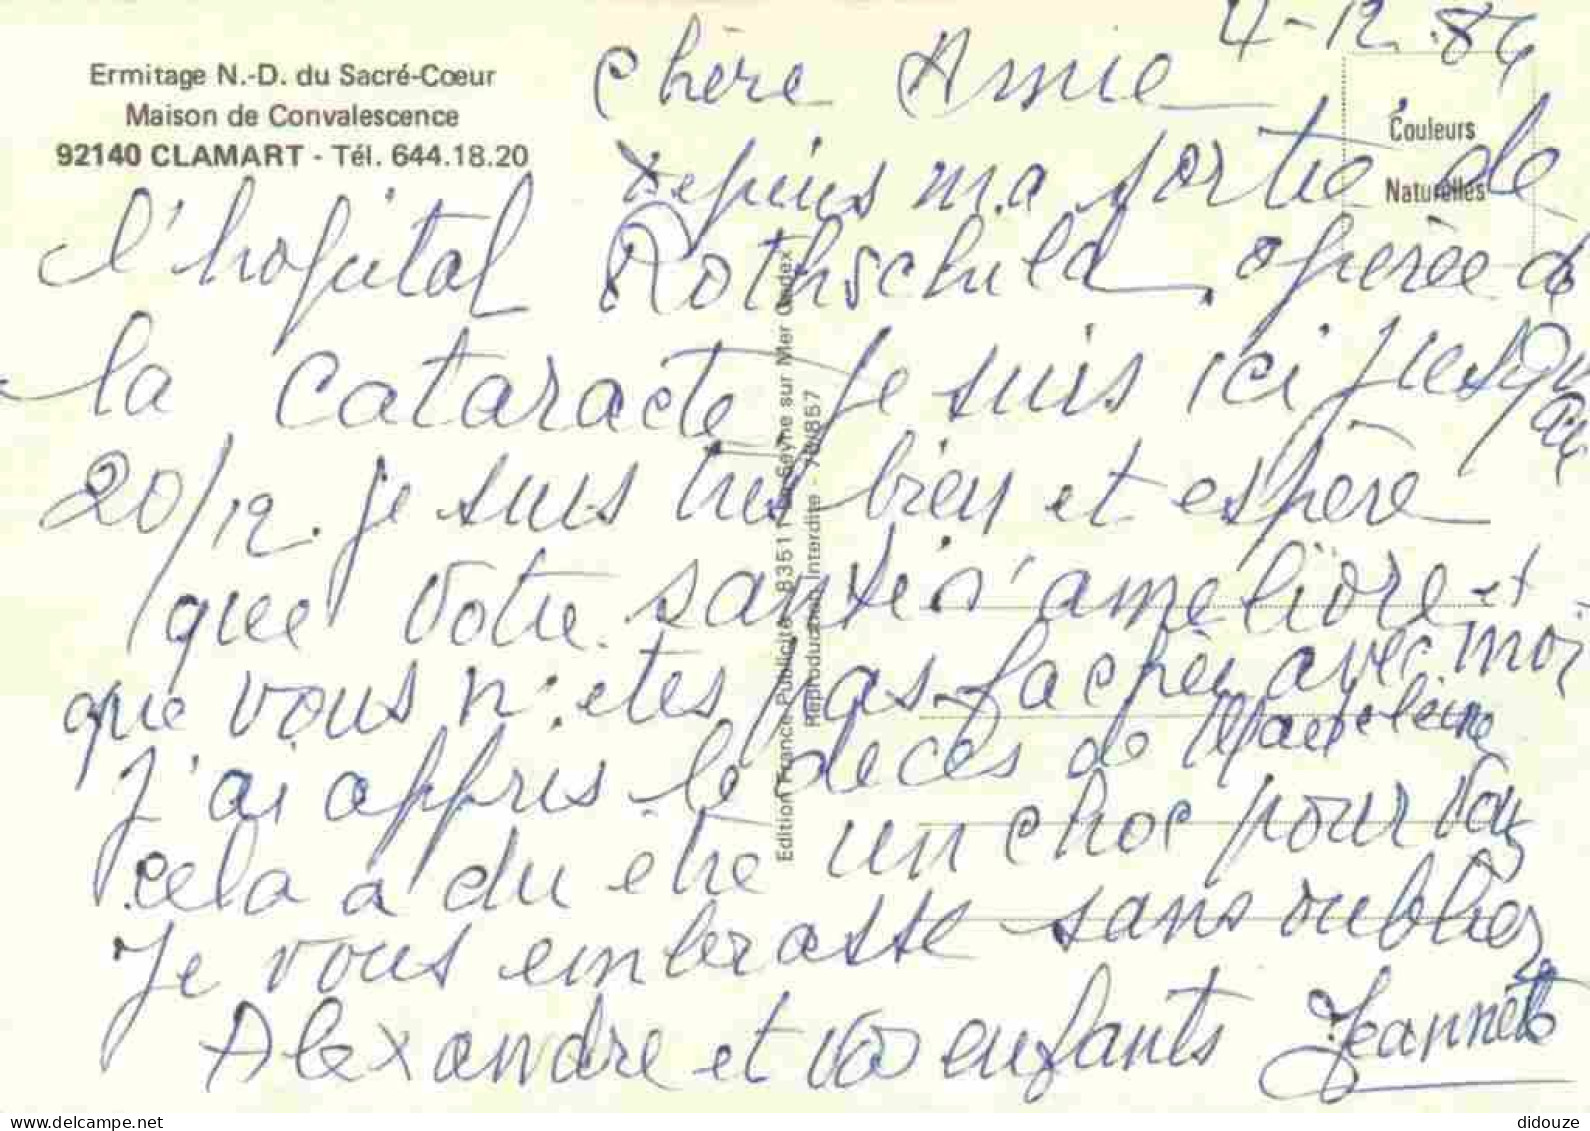 4-12.86
Ermitage N.-D. du Sacré-Cœur
Maison de Convalescence
92140 CLAMART - Tél. 644.18.20
Couleurs
Naturelles
Chère Amie
depuis ma sortie de
l'hopital Rothschild, opérée de
la cataracte je suis ici jusqu'au
20/12. je suis tres bien et espère
que votre santé s'améliore et
que vous n'etes pas fachée avec moi
J'ai appris le décès de Madeleine
cela a du être un choc pour vous
Je vous embrasse sans oublier
Alexandre et vos enfants Jeannette
Edition France Publicité 83511 La Seyne sur Mer Cedex
Reproduction Interdite -
didouze